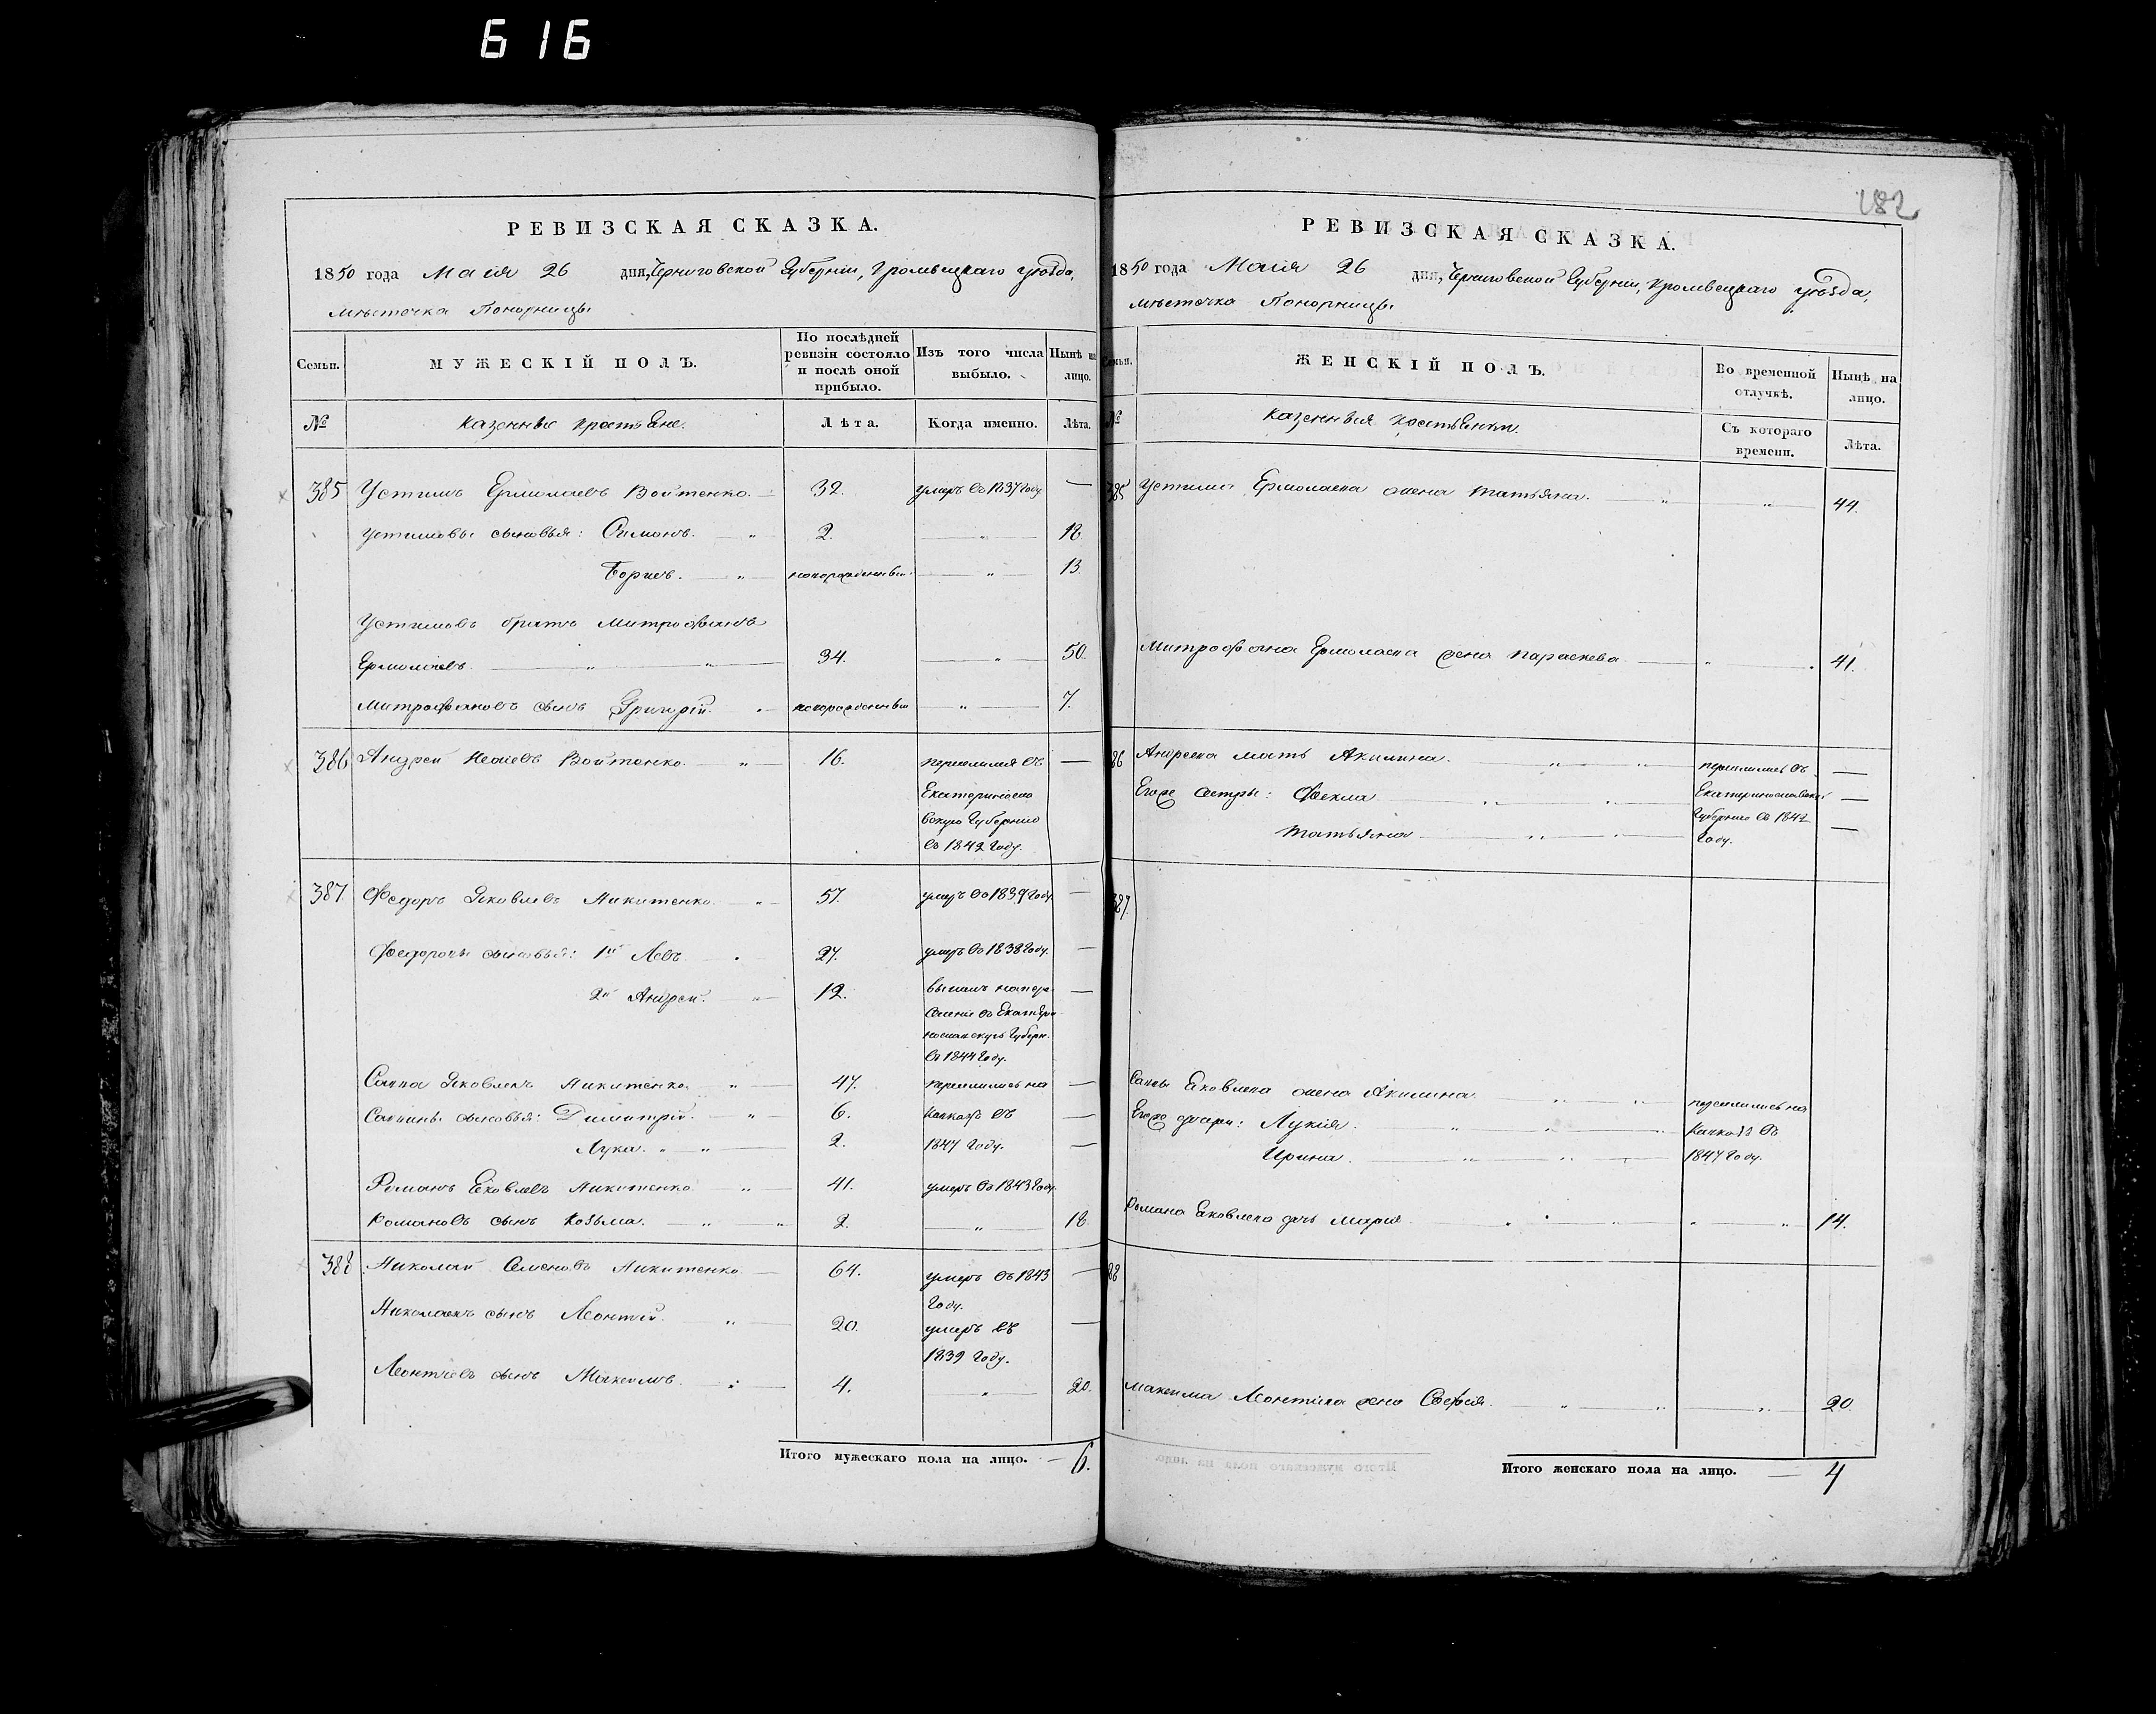 616
182
РЕВИЗСКАЯ СКАЗКА.
1850 года Маія 26 дня, Черниговской Губерніи, Кролвецкаго уѣзда,
мѣстечка Понорницы
Семьи.
МУЖЕСКІЙ ПОЛЪ.
По послѣдней ревизіи состояло и послѣ оной прибыло.
Изъ того числа выбыло.
Нынѣ на лицо.
№
Казенные крестьяне.
Лѣта.
Когда именно.
Лѣта.
385 Устимъ Ермолаевъ Войтенко. 32. умеръ въ 1837 году —
Устимовы сыновья: Симонъ. " 2. " 18.
Борисъ. " новорожденный " 13.
Устимовъ братъ Митрофанъ
Ермолаевъ. " " 34. " 50.
Митрофановъ сынъ Григорій. " новорожденный " 7.
386 Андрей Исаевъ Войтенко. " 16. переселился въ —
Екатеринославскую Губернію
въ 1842 году.
387. Федоръ Яковлевъ Никитенко " 57. умеръ въ 1839 году. —
Федоровы сыновья: 1й Левъ. 27. умеръ въ 1838 году. —
2й Андрей. " 12. —
селеніе въ Екатери-
нославскую Губерн.
въ 1844 году.
Савва Яковлевъ Никитенко. " 47. переселились на —
Саввины сыновья: Димитрій. " 6. Кавказъ въ —
Лука. " " 2. 1847 году. —
Романъ Яковлевъ Никитенко. " 41. умеръ въ 1843 году.
Романовъ сынъ Козьма. " " 2. " 18.
388 Николай Семеновъ Никитенко 64. умеръ въ 1843 —
году.
Николаевъ сынъ Леонтій. " 20. умеръ въ —
1839 году.
Леонтіевъ сынъ Максимъ. " 4. " 20.
Итого мужескаго пола на лицо. — 6.
РЕВИЗСКАЯ СКАЗКА.
1850 года Маія 26 дня, Черниговской Губерніи, Кролвецкаго уѣзда,
мѣстечка Понорницы
Семьи.
ЖЕНСКІЙ ПОЛЪ.
Во временной отлучкѣ.
Нынѣ на лицо.
№
Казенныя крестьянки.
Съ котораго времени.
Лѣта.
385 Устима Ермолаева жена Татьяна. " " 44.
Митрофана Ермолаева жена Параскева " 41.
86 Андреева мать Акилина. " " переселились въ —
Егоже сестры: Фекла " " Екатеринославскую —
Татьяна " " Губернію въ 1842 —
году.
387.
Саввы Яковлева жена Акилина " " переселились на
Егоже дочери: Лукія. " " Кавказъ въ
Ирина. " " 1847 году.
Романа Яковлева дочь Марія " " " 14.
88
Максима Леонтіева жена Софія. " " " 20.
Итого женскаго пола на лицо. — 4